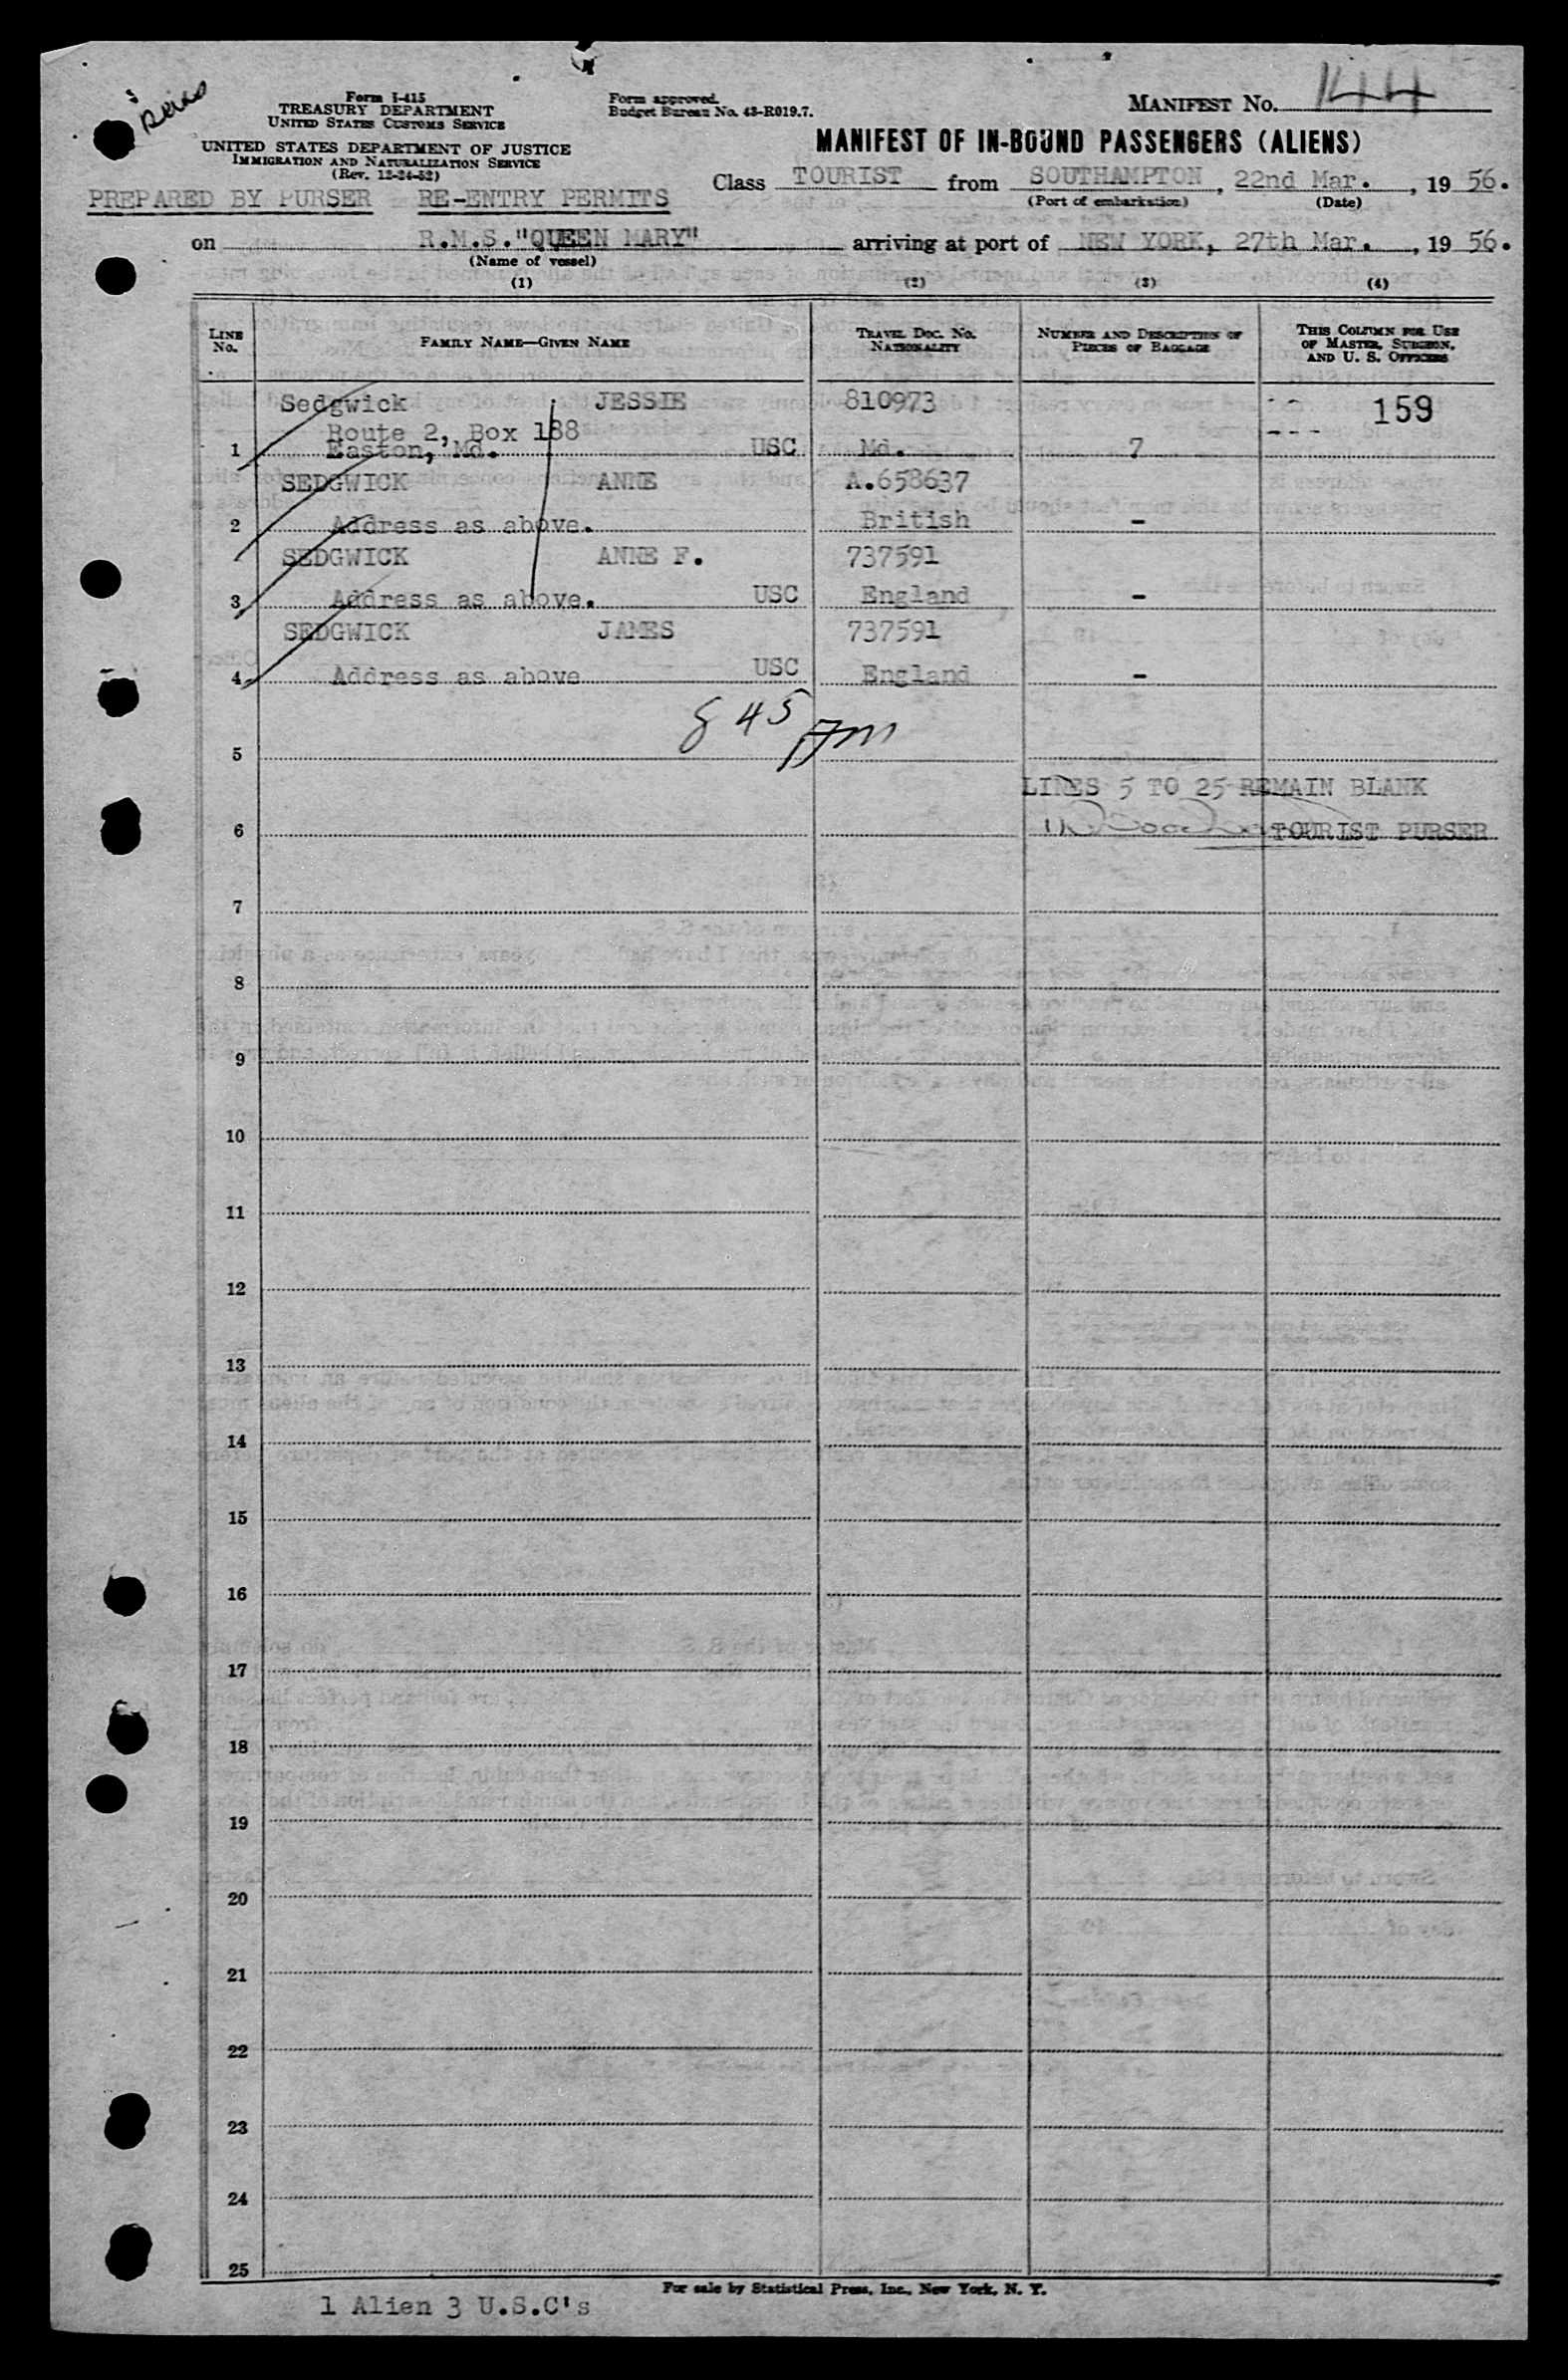 Form I-415
TREASURY DEPARTMENT
UNITED STATES CUSTOMS SERVICE
UNITED STATES DEPARTMENT OF JUSTICE
IMMIGRATION AND NATURALIZATION SERVICE
(Rev. 12-24-52)
Form approved.
Budget Bureau No. 43-R019.7.
MANIFEST NO. 144
MANIFEST OF IN-BOUND PASSENGERS (ALIENS)
PREPARED BY PURSER RE-ENTRY PERMITS
Class TOURIST from SOUTHAMPTON, 22nd Mar., 19 56.
(Port of embarkation) (Date)
on R.M.S."QUEEN MARY" arriving at port of NEW YORK, 27th Mar., 19 56.
(Name of vessel)
(1) (2) (3) (4)
LINE NO. FAMILY NAME—GIVEN NAME TRAVEL DOC. NO. NATIONALITY NUMBER AND DESCRIPTION OF PIECES OF BAGGAGE THIS COLUMN FOR USE OF MASTER, SURGEON, AND U. S. OFFICERS
Sedgwick JESSIE 810973 159
Route 2, Box 188
1 Easton, Md. USC Md. 7
SEDGWICK ANNE A.658637
2 Address as above. British -
SEDGWICK ANNE F. 737591
3 Address as above. USC England -
SEDGWICK JAMES 737591
4 Address as above USC England -
8 45 AM
5
LINES 5 TO 25 REMAIN BLANK
6 TOURIST PURSER
7
8
9
10
11
12
13
14
15
16
17
18
19
20
21
22
23
24
25
For sale by Statistical Press, Inc., New York, N. Y.
1 Alien 3 U.S.C's